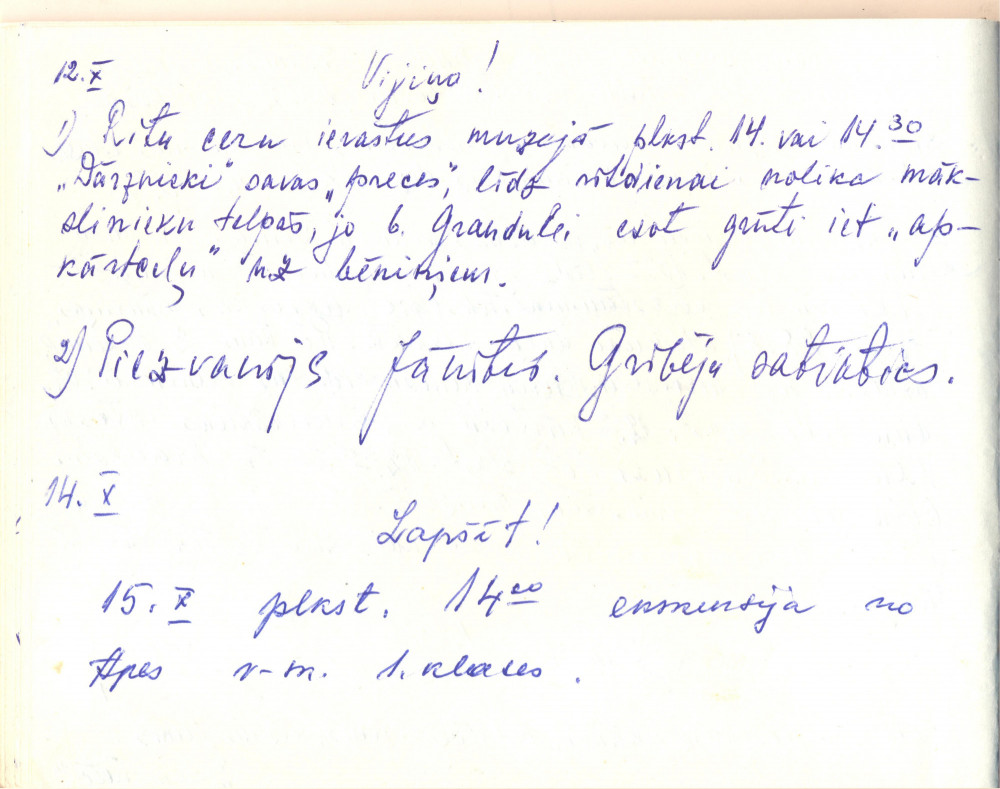 12.X Vijiņa!
1) Rītu ceru ierasties muzejā plkst. 14. vai 14.30
„Dārznieki" savas „preces", līdz rītdienai nolika māk-
slinieku telpās, jo b. Grandulei esot grūti iet „ap-
kārtceļu" uz bēniņiem.
2) Piezvanīja Jānītis. Gribēja satikties.
14. X
Lapsēt!
15. X plkst. 14 00 ekskursija no
Apes v-sk. 1. klases.